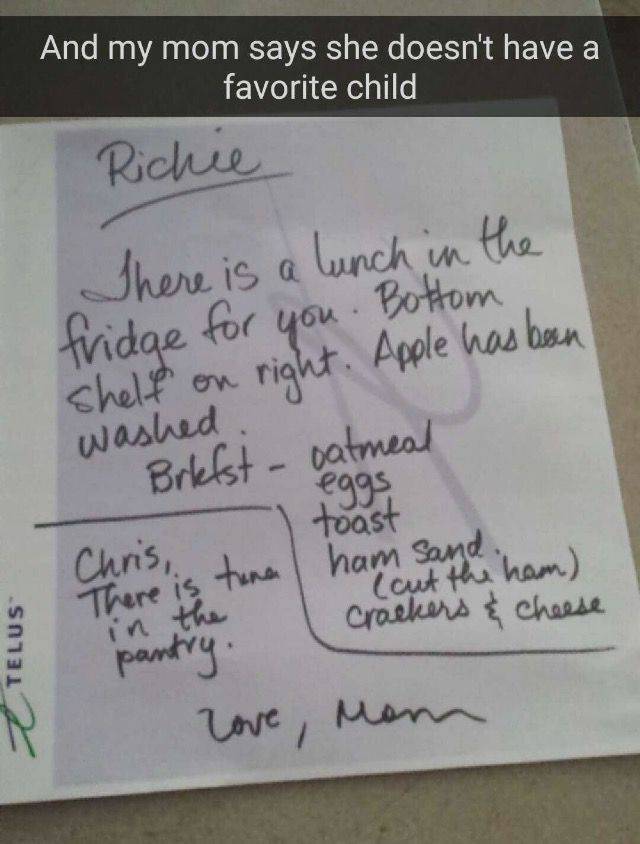 And my mom says she doesn't have a
favorite child
Richie
There is a lunch in the
fridge for you. Bottom
shelf on right. Apple has been
washed.
Brkfst - oatmeal
eggs
toast
ham sand.
(cut the ham)
crackers & cheese
Chris,
There is tuna
in the
pantry.
Love, Mom
TELUS